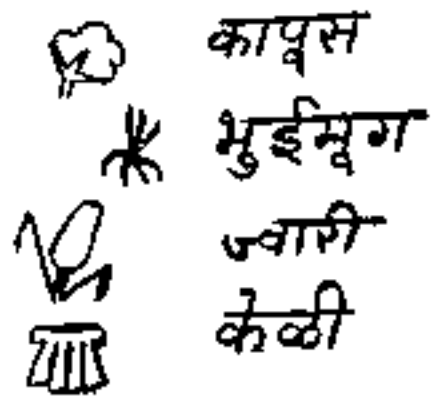 कापूस
भुईमूग
ज्वारी
केळी